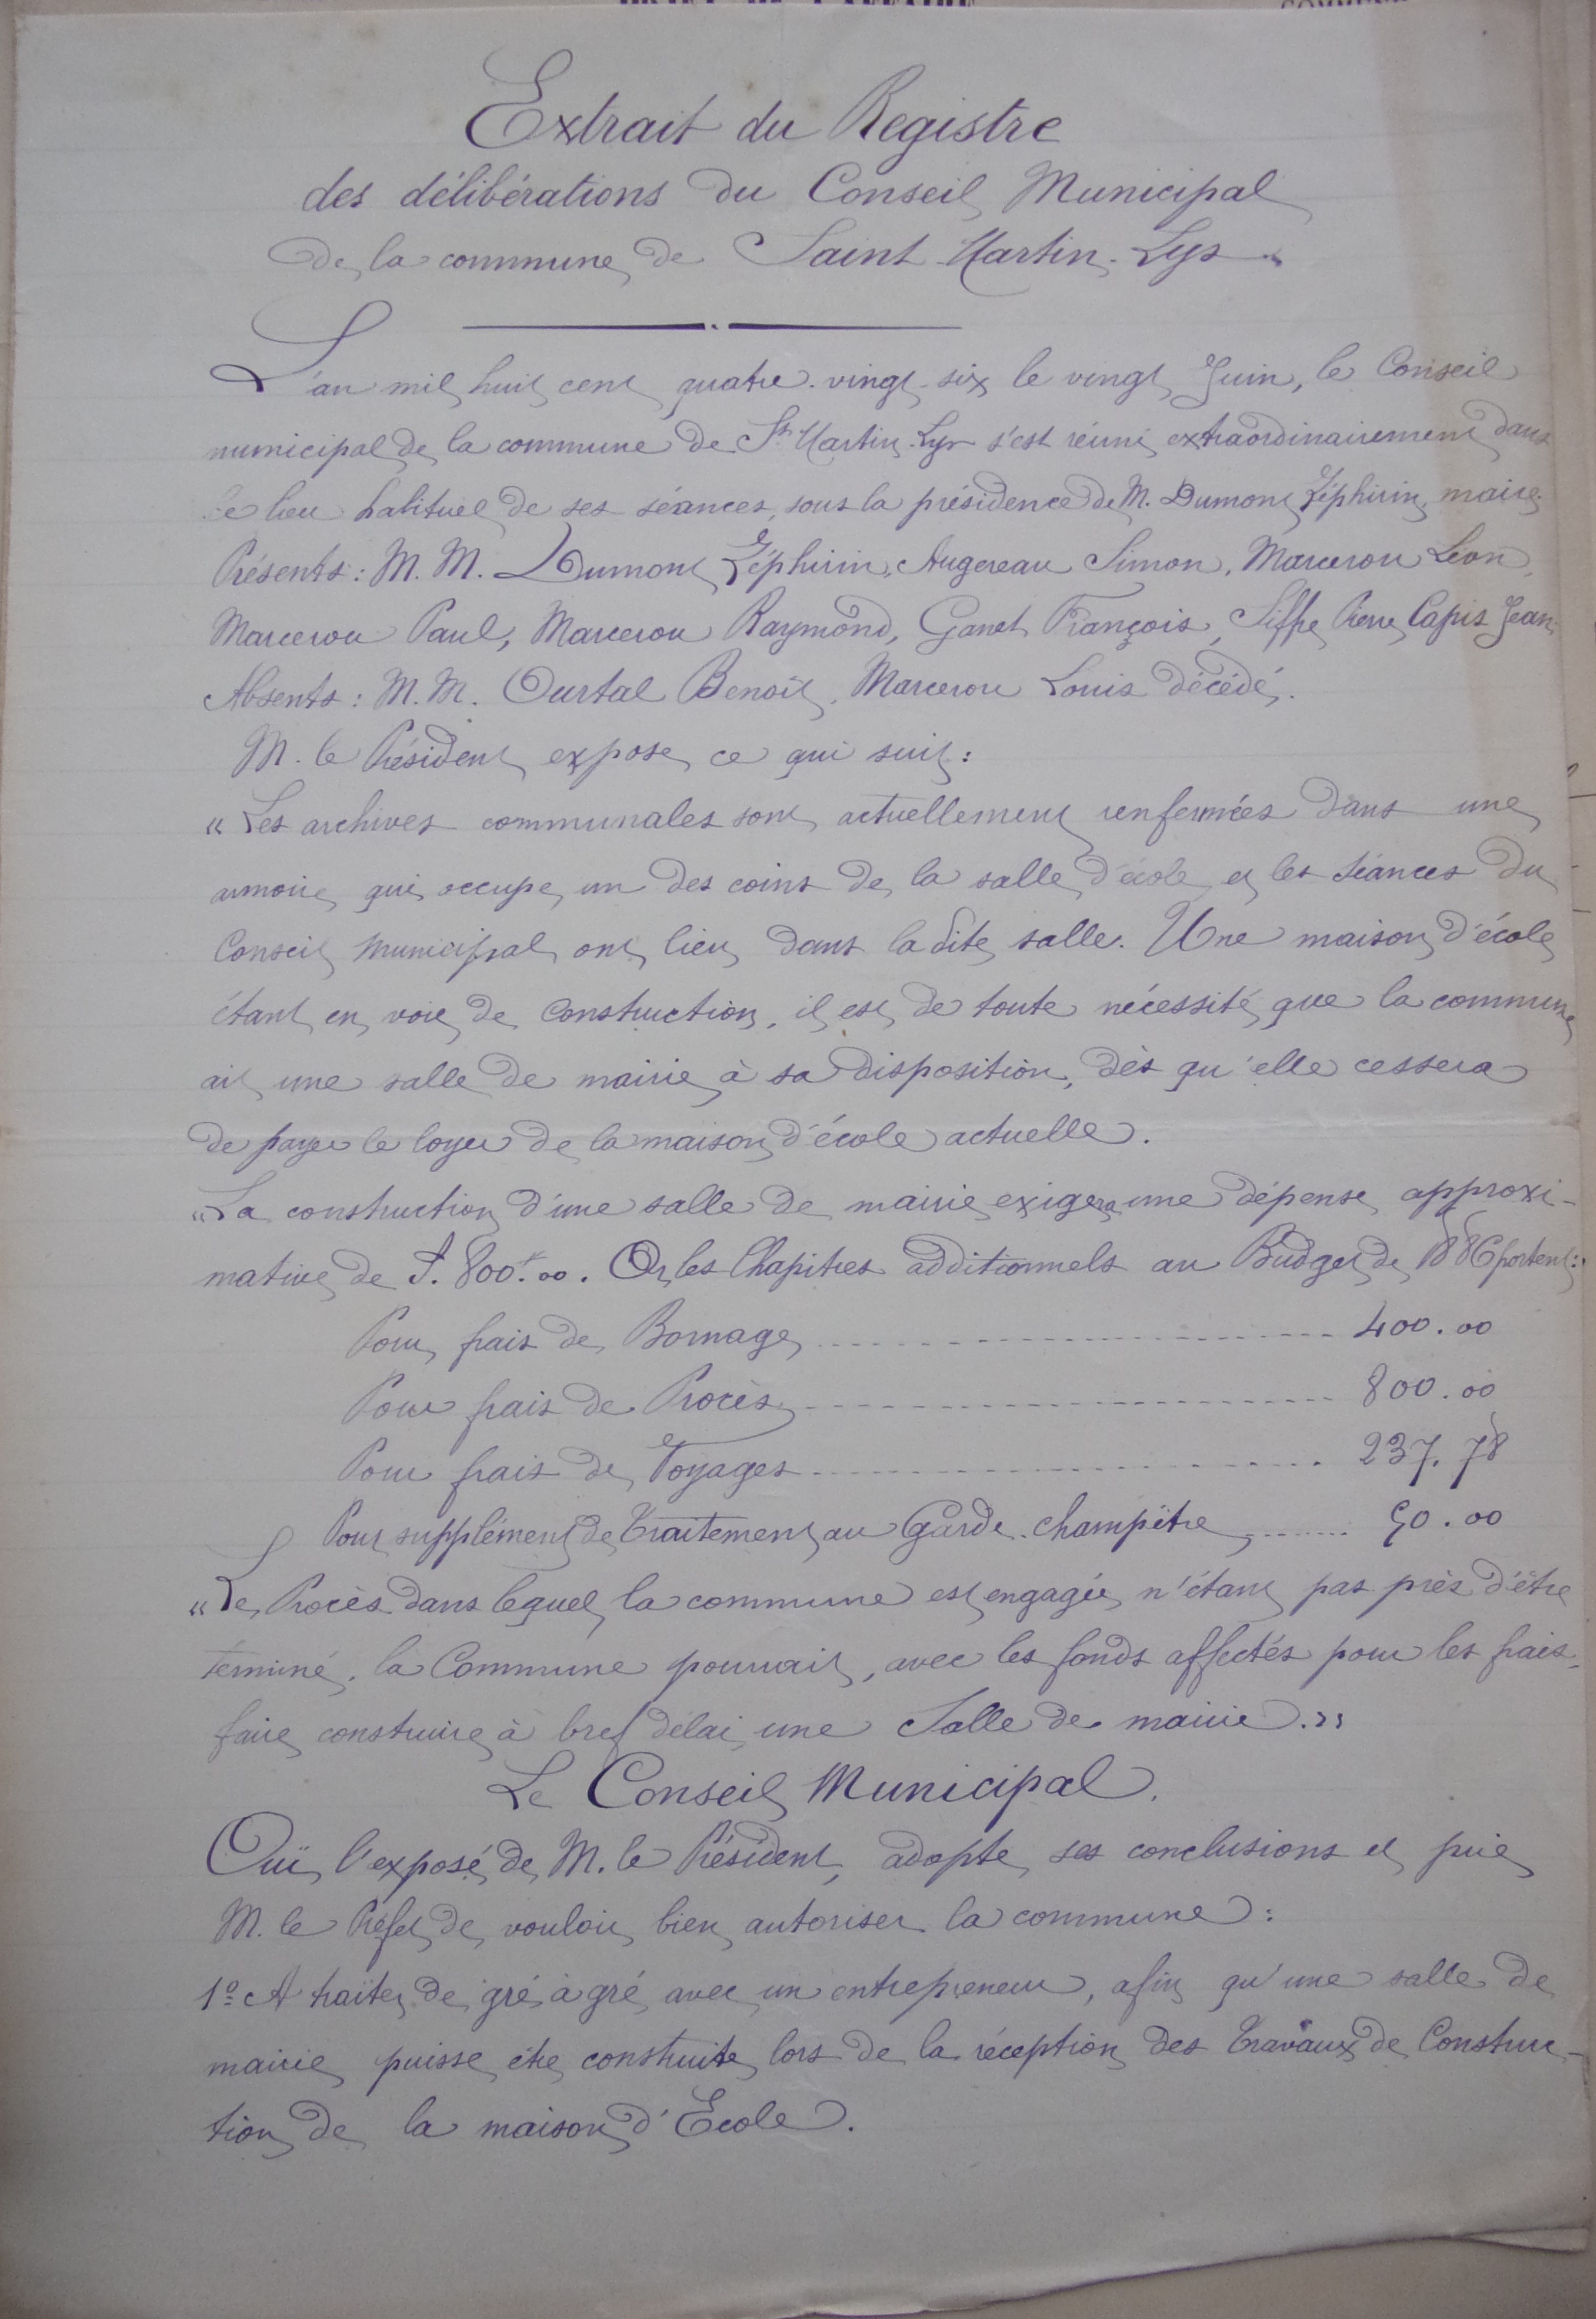 Extrait du Registre
des délibérations du Conseil Municipal
de la commune de Saint Martin-Lys
L'an mil huit cent quatre-vingt-six le vingt Juin, le Conseil
municipal de la commune de St Martin-Lys s'est réuni extraordinairement dans
le lieu habituel de ses séances, sous la présidence de M. Dumont Zéphirin, maire.
Présents : M. M. Dumont Zéphirin, Augereau Simon, Marcerou Léon,
Marcerou Paul, Marcerou Raymond, Ganet François, Siffre Pierre, Capis Jean.
Absents : M. M. Ourtal Benoît, Marcerou Louis décédé.
M. le Président expose ce qui suit :
« Les archives communales sont actuellement renfermées dans une
armoire qui occupe un des coins de la salle d'école et les séances du
Conseil Municipal ont lieu dans la dite salle. Une maison d'école
étant en voie de construction, il est de toute nécessité que la commune
ait une salle de mairie à sa disposition, dès qu'elle cessera
de payer le loyer de la maison d'école actuelle.
« La construction d'une salle de mairie exigera une dépense approxi-
mative de f. 800f.00. Or, les Chapitres additionnels au Budget de 1886 portent :
Pour frais de Bornage 400.00
Pour frais de Procès 800.00
Pour frais de Voyages 237.78
Pour supplément de Traitement au Garde-champêtre 50.00
« Le Procès dans lequel la commune est engagée n'étant pas près d'être
terminé, la Commune pourrait, avec les fonds affectés pour les frais,
faire construire à bref délai une Salle de mairie. »
Le Conseil Municipal.
Ouï l'exposé de M. le Président, adopte ses conclusions et prie
M. le Préfet de vouloir bien autoriser la commune :
1º A traiter de gré à gré avec un entrepreneur, afin qu'une salle de
mairie puisse être construite lors de la réception des Travaux de Construc-
tion de la maison d'Ecole.